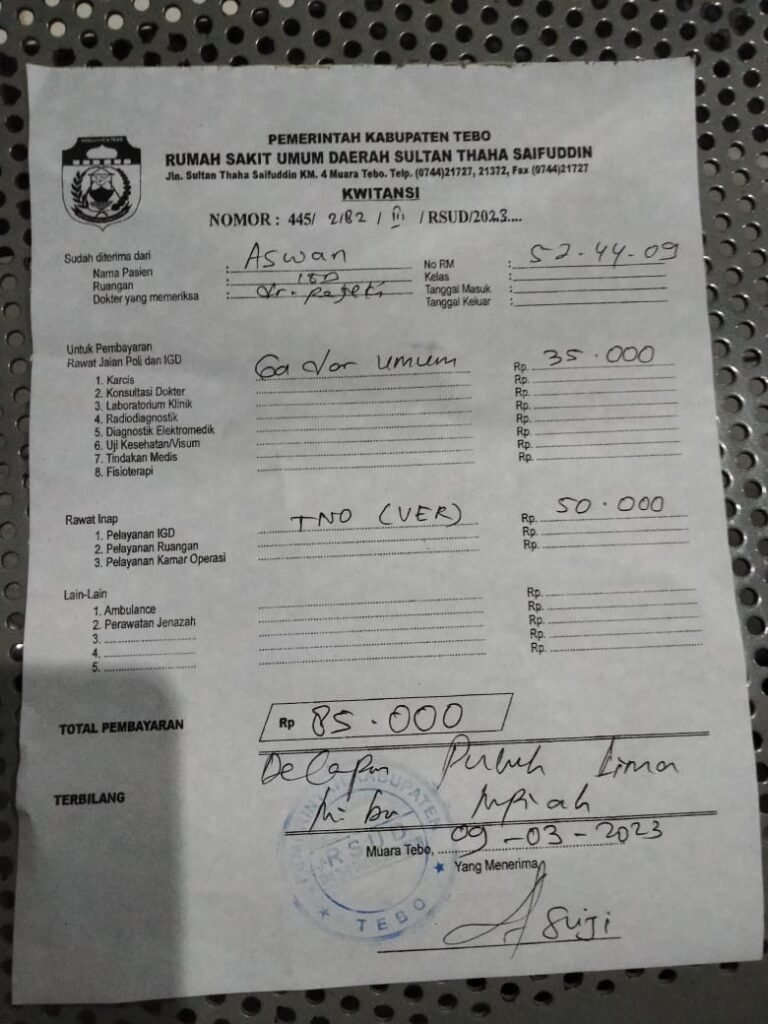 PEMERINTAH KABUPATEN TEBO
RUMAH SAKIT UMUM DAERAH SULTAN THAHA SAIFUDDIN
Jln. Sultan Thaha Saifuddin KM. 4 Muara Tebo. Telp. (0744)21727, 21372, Fax (0744)21727
KWITANSI
NOMOR : 445/ 2182 / III / RSUD/2023....
Sudah diterima dari
Nama Pasien : Aswan No RM : 52-44-09
Ruangan : IGD Kelas :
Dokter yang memeriksa : dr. Tanggal Masuk :
Tanggal Keluar :
Untuk Pembayaran
Rawat Jalan Poli dan IGD
1. Karcis umum Rp. 35.000
2. Konsultasi Dokter Rp.
3. Laboratorium Klinik Rp.
4. Radiodiagnostik Rp.
5. Diagnostik Elektromedik Rp.
6. Uji Kesehatan/Visum Rp.
7. Tindakan Medis Rp.
8. Fisioterapi Rp.
Rawat Inap
1. Pelayanan IGD TNO (VER) Rp. 50.000
2. Pelayanan Ruangan Rp.
3. Pelayanan Kamar Operasi Rp.
Lain-Lain
1. Ambulance Rp.
2. Perawatan Jenazah Rp.
3. Rp.
4. Rp.
5. Rp.
TOTAL PEMBAYARAN Rp 85.000
TERBILANG Delapan Puluh Lima
Ribu rupiah
Muara Tebo, 09-03-2023
Yang Menerima
RSUD
TEBO